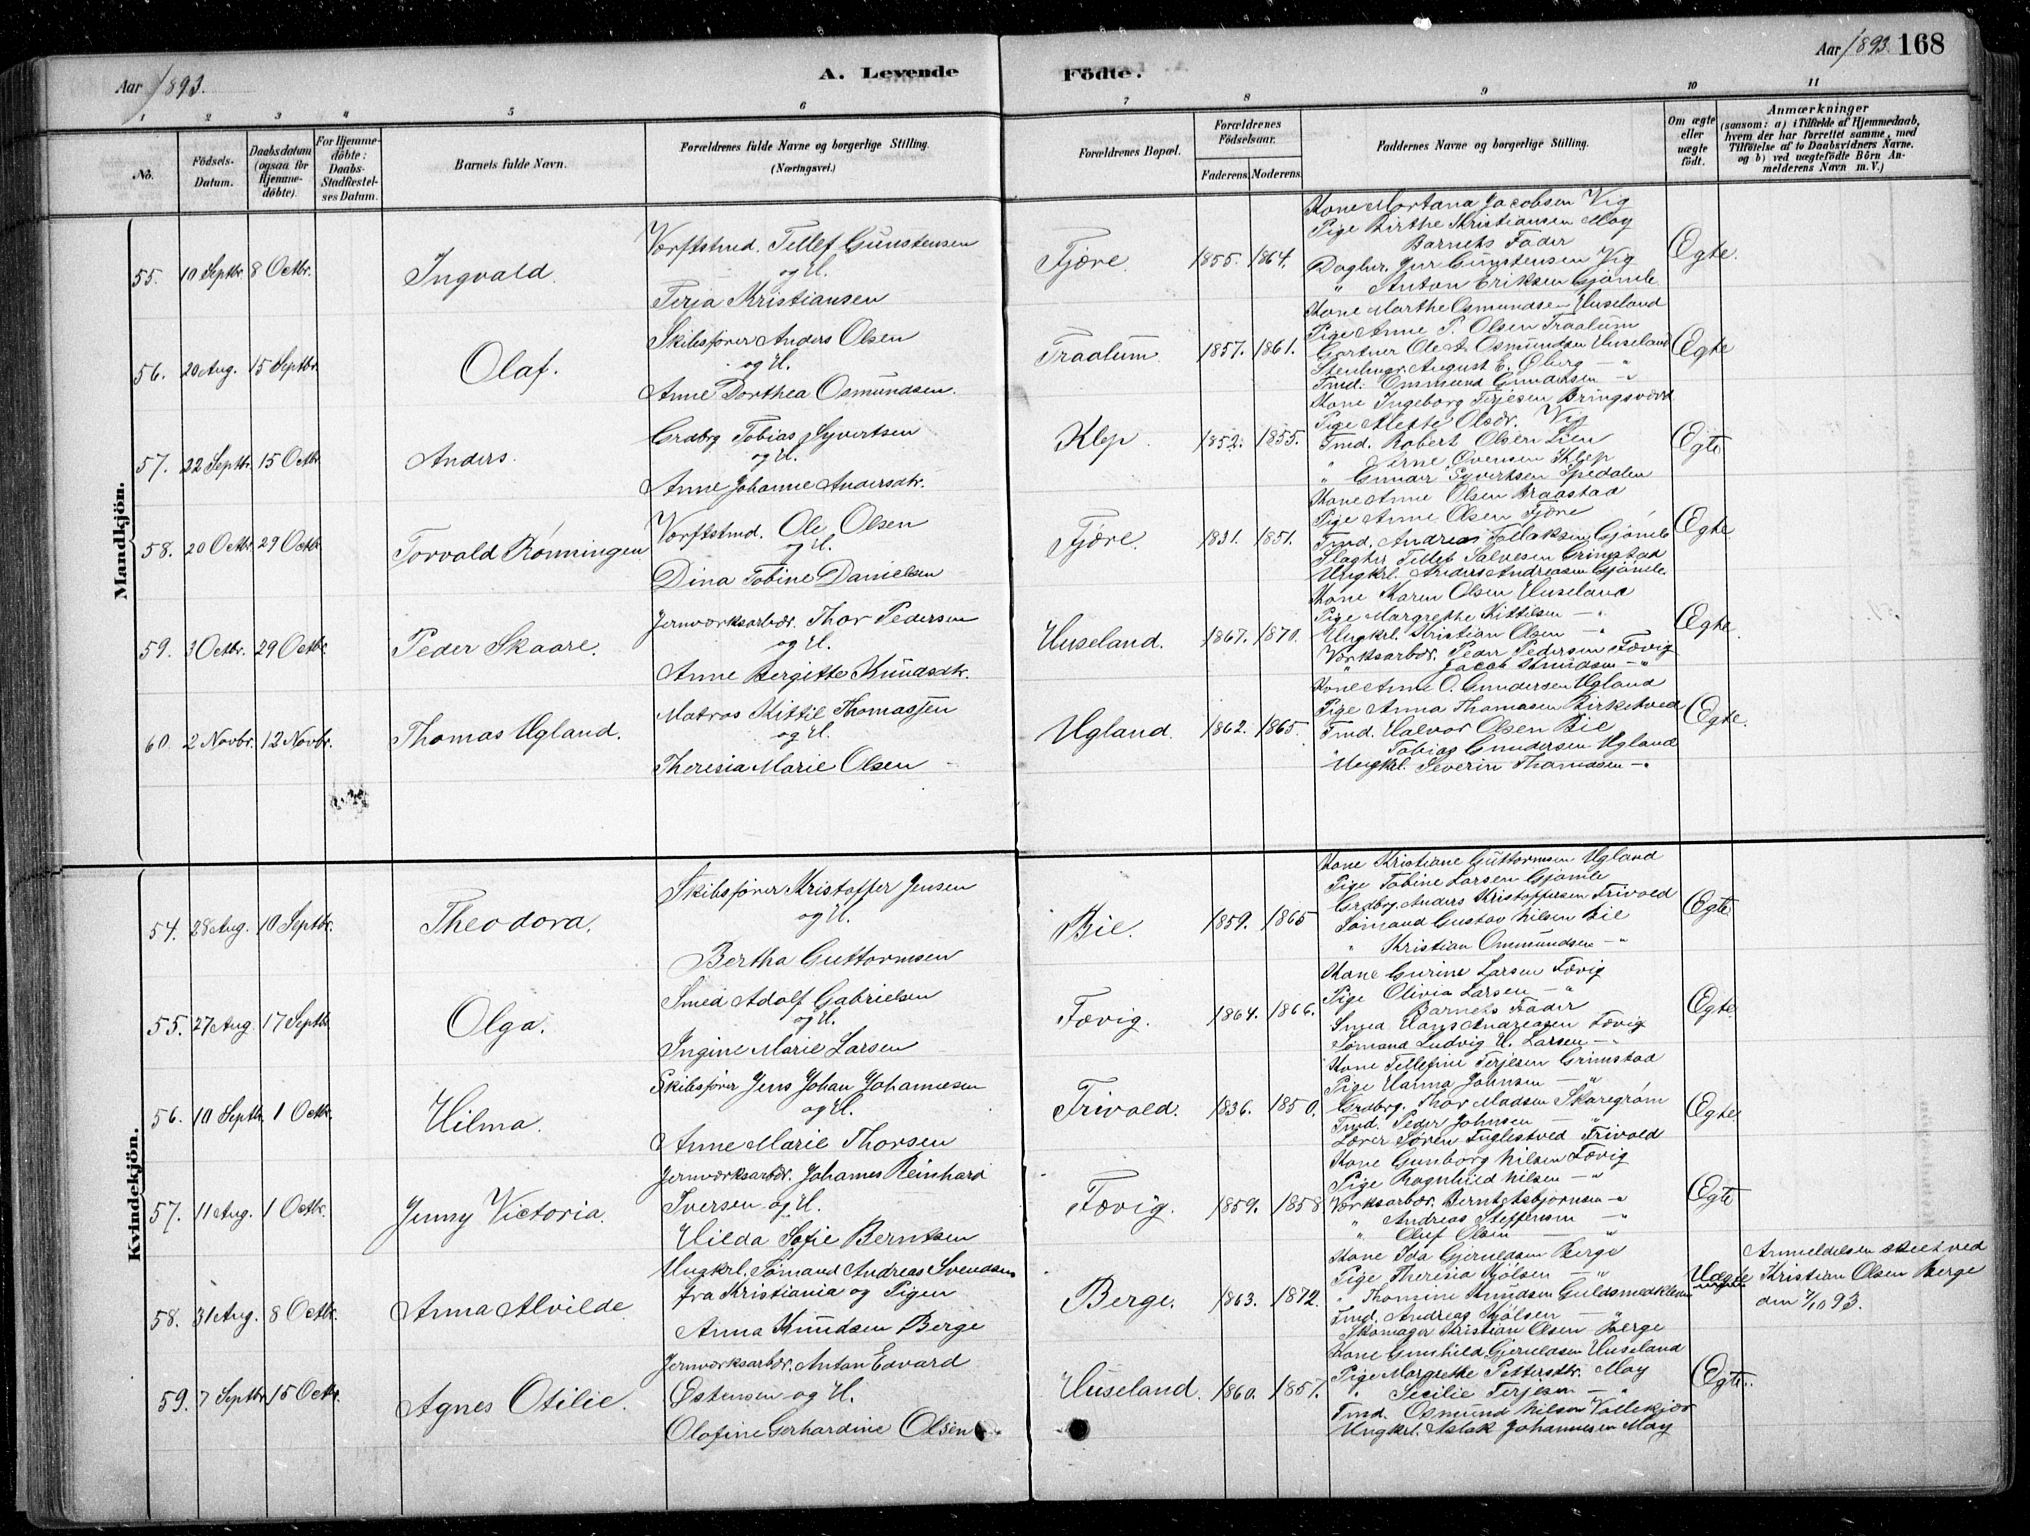 Aar 1893.
A. Levende Födte.
Aar 1893. 168
1 2 3 4 5 6 7 8 9 10 11
No.
Födsels-Datum.
Daabsdatum (ogsaa for Hjemme-döbte).
For Hjemme-döbte: Daabs-Stadfæstel-ses Datum.
Barnets fulde Navn.
Forældrenes fulde Navne og borgerlige Stilling.
(Næringsvei.)
Forældrenes Bopæl.
Forældrenes Födselsaar.
Faderens. Moderens.
Faddernes Navne og borgerlige Stilling.
Om ægte eller uægte födt.
Anmærkninger
(saasom: a) i Tilfælde af Hjemmedaab, hvem der har forrettet samme, med Tilföielse af to Daabsvidners Navne. og b) ved uægtefödte Börn An-melderens Navn m. V.)
Mandkjön.
55. 10 Septbr. 8 Octbr. Ingvald.
Værftstmd. Tellef Gunstensen
og H.
Terja Kristiansen
Fjære. 1855. 1864.
Kone Martana Jacobsen Vig
Pige Birthe Kristiansen Moy
Barnets Fader
Daglnr. Jur Gunstensen Vig
" Anton Eriksen Gjömle
Egte.
56. 20 Aug. 15 Septbr. Olaf.
Skibsfører Anders Olsen
og H.
Anne Dorthea Osmundsen.
Traalum. 1857. 1861.
Kone Marthe Osmundsen Huseland
Pige Anne P. Olsen Traalum
Gartner Ole A. Osmundsen Huseland
Stenhugr. August E. Øberg — "
Tmd. Ommund Gundersen — "
Egte
57. 22 Septbr. 15 Octbr. Anders.
Grdbrg Tobias Syvertsen
og H.
Anne Johanne Andersdtr.
Klep. 1852. 1855.
Kone Ingeborg Terjesen Bringsværd
Pige Alette Olsdr. Vig
Tmd. Robert Olsen Lien
" Arne Evensen Klep
" Gunder Syvertsen Spedalen
Egte
58. 20 Octbr. 29 Octbr. Torvald Rønningen
Værftstmd. Ole Olsen
og H.
Dina Tobine Danielsen
Fjære. 1831. 1851.
Kone Anne Olsen Braastad
Pige Anne Olsen Fjære
Tmd. Andreas Tellaksen Gjömle
Slagter Tellef Salvesen Grimstad
Ungkrl. Anders Andreasen Gjömle.
Egte
59. 3 Octbr. 29 Octbr. Peder Skaare.
Jernværksarbdr. Thor Pedersen
og H.
Anne Bergitte Knudsdtr.
Huseland. 1867. 1870.
Kone Karen Olsen Huseland
Pige Margrethe Kittilsen — "
Ungkrl. Kristian Olsen — "
Værksarbdr. Peder Pedersen Fævig
" Jacob Knudsen — "
Egte.
60. 2 Novbr. 12 Novbr. Thomas Ugland.
Matros Kittil Thomassen
og H.
Theresia Marie Olsen
Ugland. 1862. 1865.
Kone Anne O. Gundersen Ugland
Pige Anna Thomasen Birketved
Tmd. Halvor Olsen Bie
Tobias Gundersen Ugland
Ungkrl. Severin Thomassen — "
Egte.
Kvindekjön.
54. 28 Aug. 10 Septbr. Theodora.
Skibsfører Kristoffer Jensen
og H.
Bertha Guttormsen
Bie. 1859. 1865
Kone Kristiane Guttormsen Ugland
Pige Tobine Larsen Gjömle
Grdbrg. Anders Kristoffersen Frivold
Sømand Gustav Nilsen Bie
" Kristian Ommundsen — "
Egte
55. 27 Aug. 17 Septbr. Olga.
Smed Adolf Gabrielsen
og H.
Ingine Marie Larsen
Fævig. 1864. 1866.
Kone Gurine Larsen Fævig
Pige Olivia Larsen — "
Barnets Fader
Smed Hans Andreasen Fævig
Sømand Ludvig H. Larsen — "
Egte.
56. 10 Septbr. 1 Octbr. Hilma.
Skibsfører Jens Johan Johannesen
og H.
Anne Marie Thorsen
Frivold. 1836. 1850.
Kone Tellefine Terjesen Grimstad
Pige Hanna Johnsen — "
Grdbrg. Thor Madsen Skaregrøm
Tmd. Peder Johnsen
Lærer Søren Fuglestved Frivold
Egte.
57. 11 Aug. 1 Octbr. Jenny Victoria.
Jernværksarbdr. Johannes Reinhard
Iversen og H.
Hilda Sofie Berntsen
Fævig. 1859. 1858
Kone Gunborg Nilsen Fævig
Pige Ragnhild Nilsen — "
Værksarbdr. Bernt Asbjørnsen — "
" Andreas Steffensen — "
" Oluf Olsen — "
Egte
58. 31 Aug. 8 Octbr. Anna Alvilde
Ungkrl. Sømand Andreas Svendsen
fra Kristiania og Pigen
Anna Knudsen Berge
Berge. 1863. 1872.
Kone Ida Gjeruldsen Berge
Pige Theresia Kjølsen — "
" Thomine Knudsen Guldsmedklem
Tmd. Andreas Kjølsen — "
Skomager Kristian Olsen Berge
Uægte
Anmeldelsen skeet ved
Kristian Olsen Berge
den 7/10 93.
59. 7 Septbr. 15 Octbr. Agnes Otilie.
Jernværksarbdr. Anton Edvard
Østensen og H.
Olofine Gerhardine Olsen
Huseland. 1860. 1857.
Kone Gunhild Gjeruldsen Huseland
Pige Margrethe Pettersdtr. Moy
" Secilie Terjesen — "
Tmd. Osmund Nilsen Vollekjær
Ungkrl. Aslak Johannesen Moy
Egte.